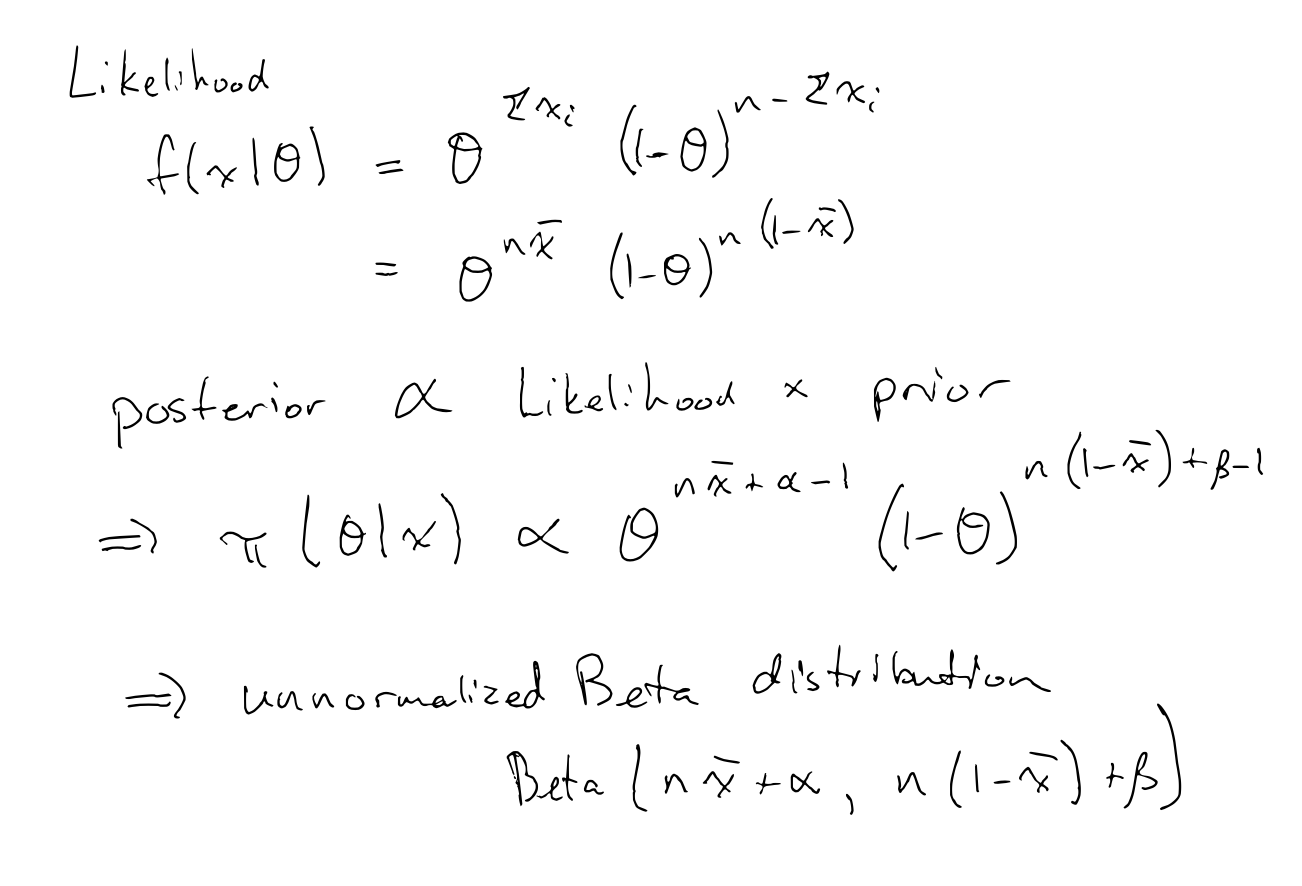 Likelihood
f(x|θ) = θ^{Σx_i} (1-θ)^{n-Σx_i}
= θ^{nx̄} (1-θ)^{n(1-x̄)}
posterior ∝ Likelihood × prior
⇒ π(θ|x) ∝ θ^{nx̄+α-1} (1-θ)^{n(1-x̄)+β-1}
⇒ unnormalized Beta distribution
Beta(nx̄+α, n(1-x̄)+β)